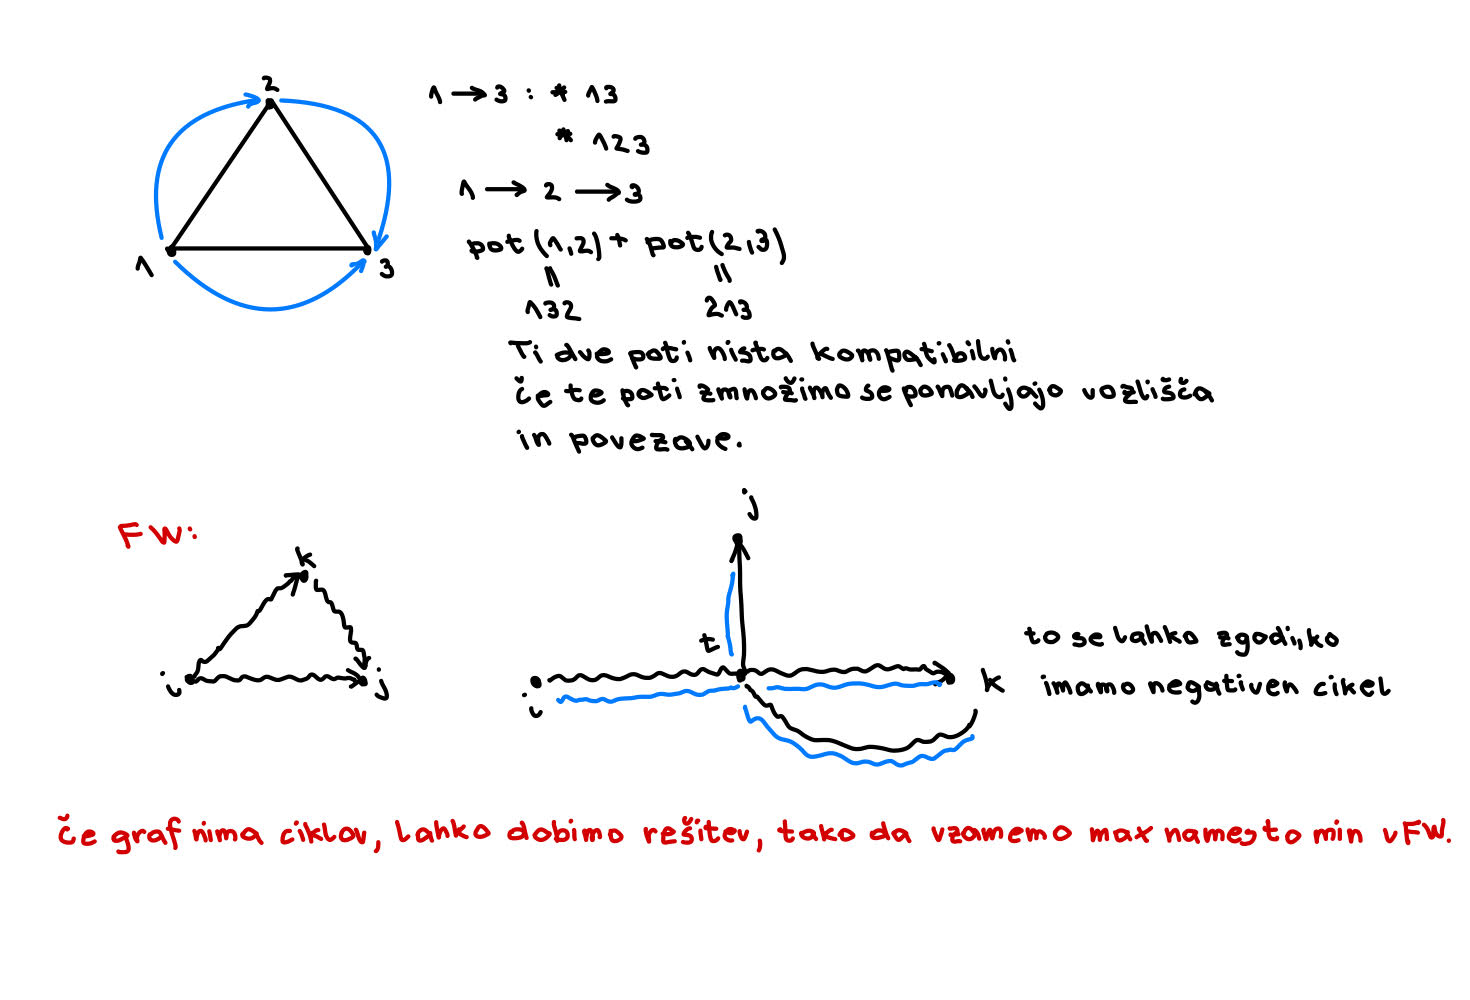 2
1
3
1 → 3 : * 13
* 123
1 → 2 → 3
pot (1,2) + pot (2,3)
= =
132 213
Ti dve poti nista kompatibilni
če te poti zmnožimo se ponavljajo vozlišča
in povezave.
FW:
k
i
j
j
t
i
k
to se lahko zgodi, ko
imamo negativen cikel
če graf nima ciklov, lahko dobimo rešitev, tako da vzamemo max namesto min v FW.